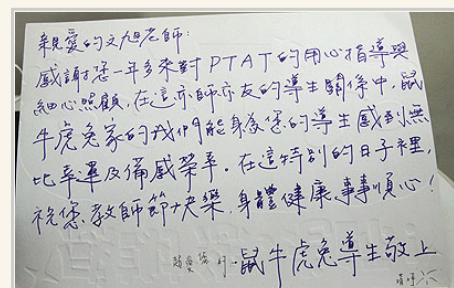 親愛的文旭老師:
感謝您一年多來對PTAT的用心指導與
細心照顧,在這亦師亦友的導生關係中,鼠
牛虎兔家的我們能身為您的導生感到無
比幸運及備感榮幸。在這特別的日子裡,
祝您教師節快樂,身體健康,事事順心!
鼠牛虎兔導生敬上